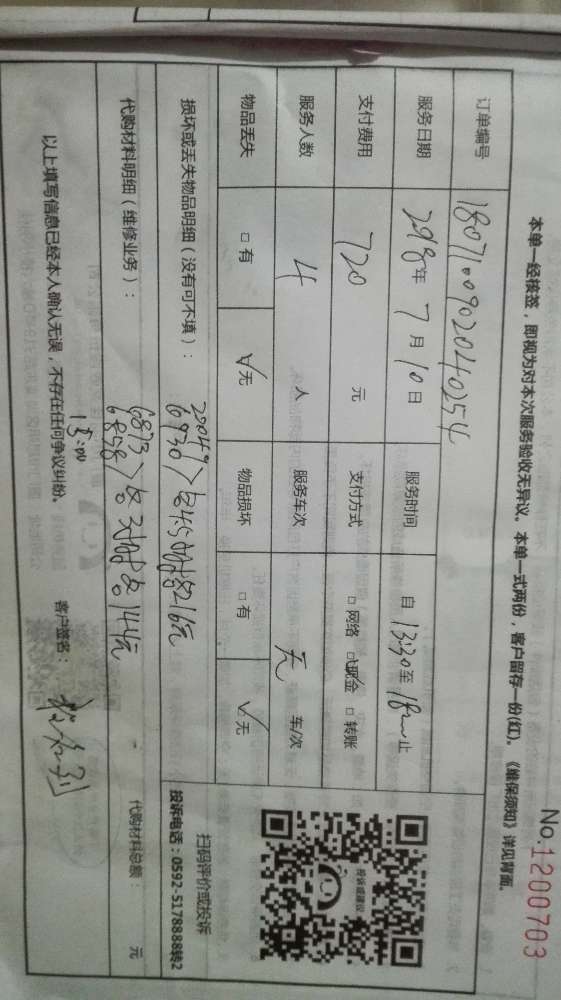 No.1200703
本单一经核签，即视为对本次服务验收无异议。本单一式两份，客户留存一份(红)。《维保须知》详见背面。
订单编号 1807100902040254
服务日期 2018年 7月10日 服务时间 自 13:30至 18 止
支付费用 720 元 支付方式 □网络 □现金 □转账
服务人数 4 人 服务车次 无 车/次
物品丢失 □有 √无 物品损坏 □有 √无
损坏或丢失物品明细（没有可不填）：
6930＞各4.5小时各216元
代购材料明细（维修业务）：
6873
6858＞各3小时各144元
代购材料总额： 元
投诉或建议
扫码评价或投诉
投诉电话：0592-5178888转2
以上填写信息已经本人确认无误，不存在任何争议纠纷。 客户签名：